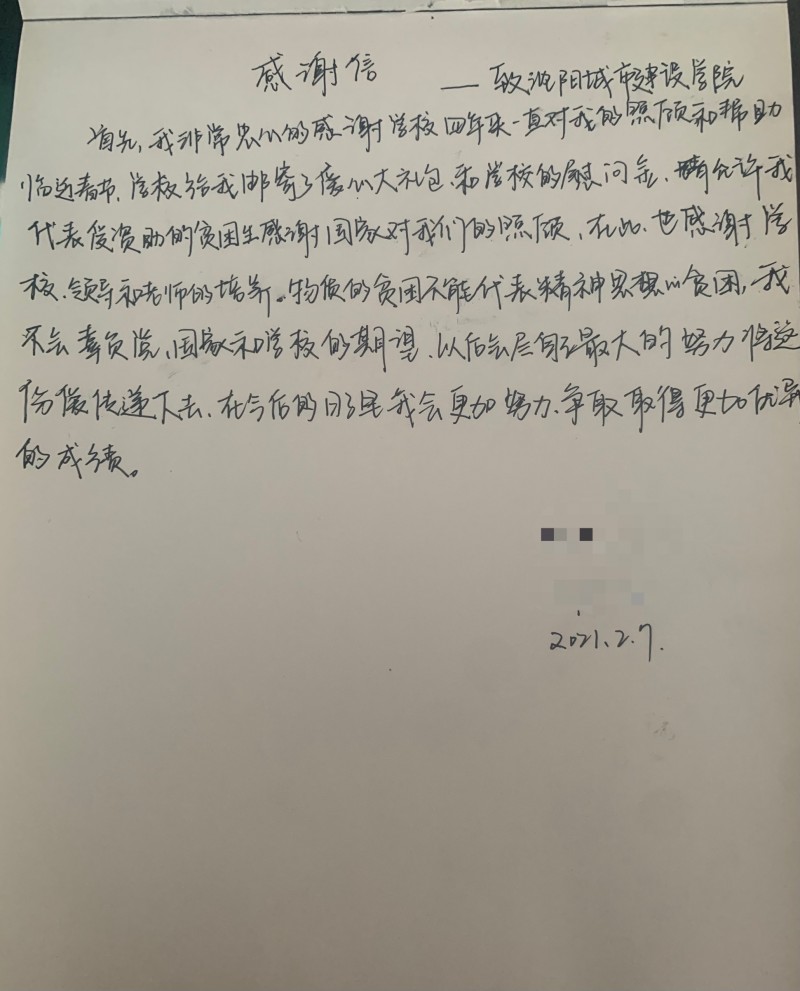 感谢信 ——致沈阳城市建设学院
首先,我非常衷心的感谢学校四年来一直对我的照顾和帮助
临近春节,学校给我邮寄了爱心大礼包,和学校的慰问金,请允许我
代表受资助的贫困生感谢国家对我们的照顾,在此,也感谢学
校、领导和老师的培养。物质的贫困不能代表精神思想的贫困,我
不会辜负党、国家和学校的期望,以后会尽自己最大的努力将这
份爱传递下去,在今后的日子里我会更加努力,争取取得更加优异
的成绩。
2021.2.7.